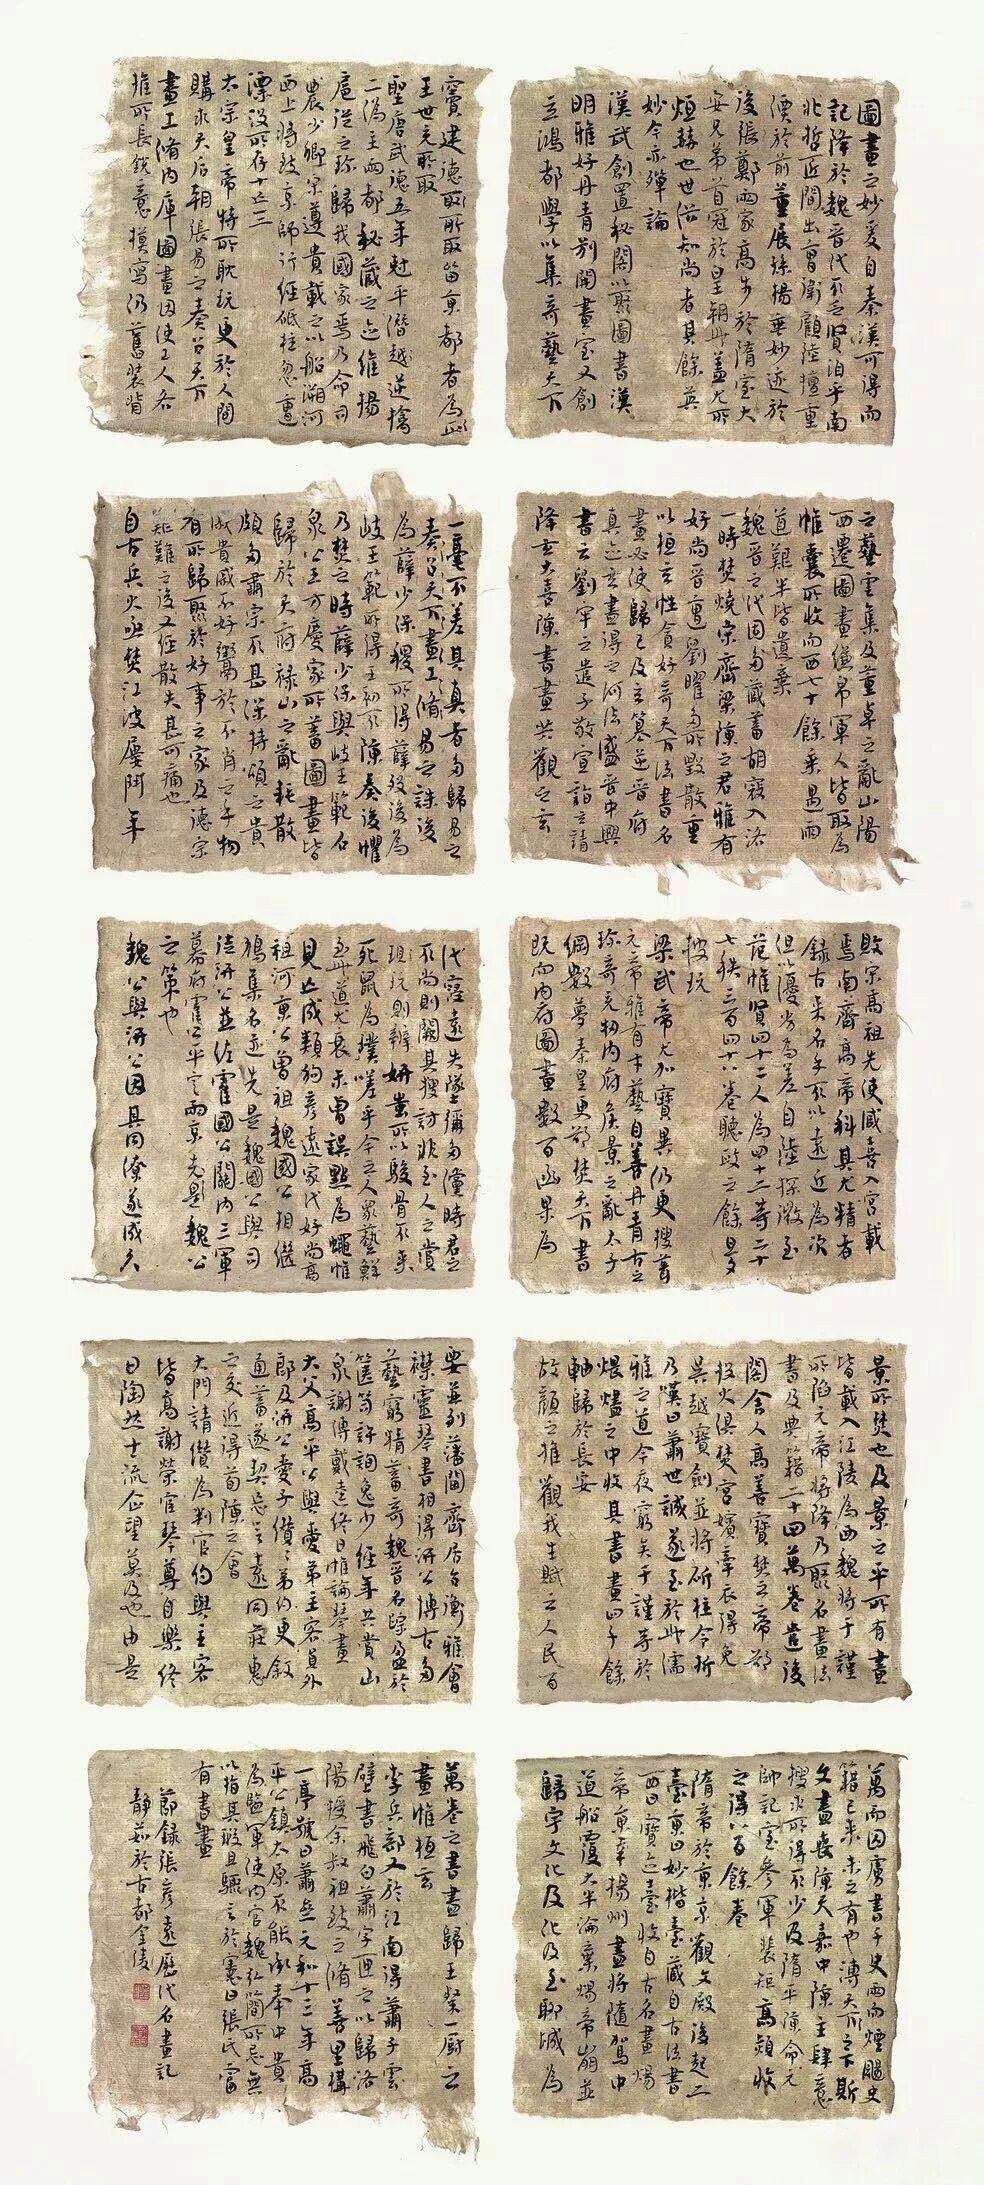 圖畫之妙爰自秦漢可得而
記降於魏晉代不乏賢洎乎南
北哲匠間出曹衛顧陸擅重
價於前董展孫楊垂妙迹於
後張鄭兩家高步於隋室大
安兄弟首冠於皇朝此蓋尤所
烜赫也世俗知尚者其餘英
妙今亦殫論
漢武創置秘閣以聚圖書漢
明雅好丹青別開畫室又創
立鴻都學以集奇藝天下
之藝雲集及董卓之亂山陽
西遷圖畫縑帛軍人皆取為
帷囊所收而西七十餘乘遇雨
道艱半皆遺棄
魏晉之代固多藏蓄胡寇入洛
一時焚燒宋齊梁陳之君雅有
好尚晉遭劉曜多所毀散重
以桓玄性貪好奇天下法書名
畫必使歸己及玄篡逆晉府
真迹玄盡得之何法盛晉中興
書云劉牢之遣子敬宣詣玄請
降玄大喜陳書畫共觀之玄
敗宋高祖先使臧喜入宮載
焉南齊高帝科其尤精者
錄古來名手不以遠近為次
但以優劣為差自陸探微至
范惟賢四十二人為四十二等二十
七秩三百四十八卷聽政之餘旦夕
披玩
梁武帝尤加寶異仍更搜葺
元帝雅有才藝自善丹青古之
珍奇充牣內府侯景之亂太子
綱數夢秦皇更欲焚天下書
既而內府圖畫數百函果為
景所焚也及景之平所有畫
皆載入江陵為西魏將于謹
所陷元帝將降乃聚名畫法
書及典籍二十四萬卷遣後
閣舍人高善寶焚之帝欲
投火俱焚宮嬪牽衣得免
吳越寶劍並將斫柱令折
乃嘆曰蕭世誠遂至於此儒
雅之道今夜窮矣于謹等於
煨燼之中收其書畫四千餘
軸歸於長安
故顏之推觀我生賦云人民百
萬而囚虜書千史兩而煙颺史
籍已來未之有也溥天之下斯
文盡喪陳天嘉中陳主肆意
搜求所得不少及隋平陳命元
帥記室參軍裴矩高熲收
之得八百餘卷
隋帝於東京觀文殿後起二
臺東曰妙楷臺藏自古法書
西曰寶迹臺收自古名畫煬
帝東幸揚州盡將隨駕中
道船覆大半淪棄煬帝崩並
歸宇文化及化及至聊城為
竇建德所取留東都者為
王世充所取
聖唐武德五年剋平僭逆擒
二偽主兩都秘藏之迹維揚
扈從之珍歸我國家焉乃命司
農少卿宋遵貴載之以船泝河
西上將致京師行經砥柱忽遭
漂沒所存十亡二
太宗皇帝特所耽玩更於人間
購求天后朝張易之奏召天下
畫工脩內庫圖畫因使工人各
推所長銳意摸寫仍舊裝背
一毫不差其真者多歸易之
奏召天下畫工脩易之誅後
為薛少保稷所得薛歿後為
岐王範所得王初不陳奏後懼
乃焚之時薛少保與岐王範石
泉公王方慶家所蓄圖畫皆
歸於天府祿山之亂耗散
頗多肅宗不甚保持頒之貴
戚貴戚不好鬻於不肖之手物
有所歸聚於好事之家及德宗
艱難之後又經散失甚可痛也
自古兵火亟焚江波屢鬥年
代寖遠失墜彌多儻時君之
不尚則闕其搜訪非至人之賞
玩則未辨妍蚩所以駿骨不來
死鼠為璞嗟乎今之人眾藝鮮
至此道尤衰未曾誤點為蠅惟
見亡成類狗彥遠家代好尚高
祖河東公曾祖魏國公相繼
鳩集名迹先是魏國公與司
徒汧公並佐霍國公關內三軍
幕府霍公平定兩京尤是魏公
之策也
魏公與汧公因其同寮遂成久
要並列藩閫齊居台衡雅會
襟靈琴書相得汧公博古多
藝窮精蓄奇魏晉名蹤盈於
篋笥許詢逸少經年共賞山
泉謝傅戴逵終日惟論琴畫
大父高平公與愛弟主客員外
郎及汧公愛子纘纘弟約更敘
通舊遂契忘言遠同莊惠
之交近得荀陳之會
大門請纘為判官約與主客
皆高謝榮宦琴尊自樂終
日陶然士流企望莫及也由是
萬卷之書盡歸王粲一廚之
畫惟桓玄
李兵部又於江南得蕭子雲
壁書飛白蕭字匣之以歸洛
陽授余叔祖致之脩善里構
一亭號曰蕭齋元和十三年高
平公鎮太原不能承奉中貴
為監軍使內官魏弘簡所忌無
以指其瑕且驟言於憲曰張氏富
有書畫
節錄張彥遠歷代名畫記
靜茹於古都金陵